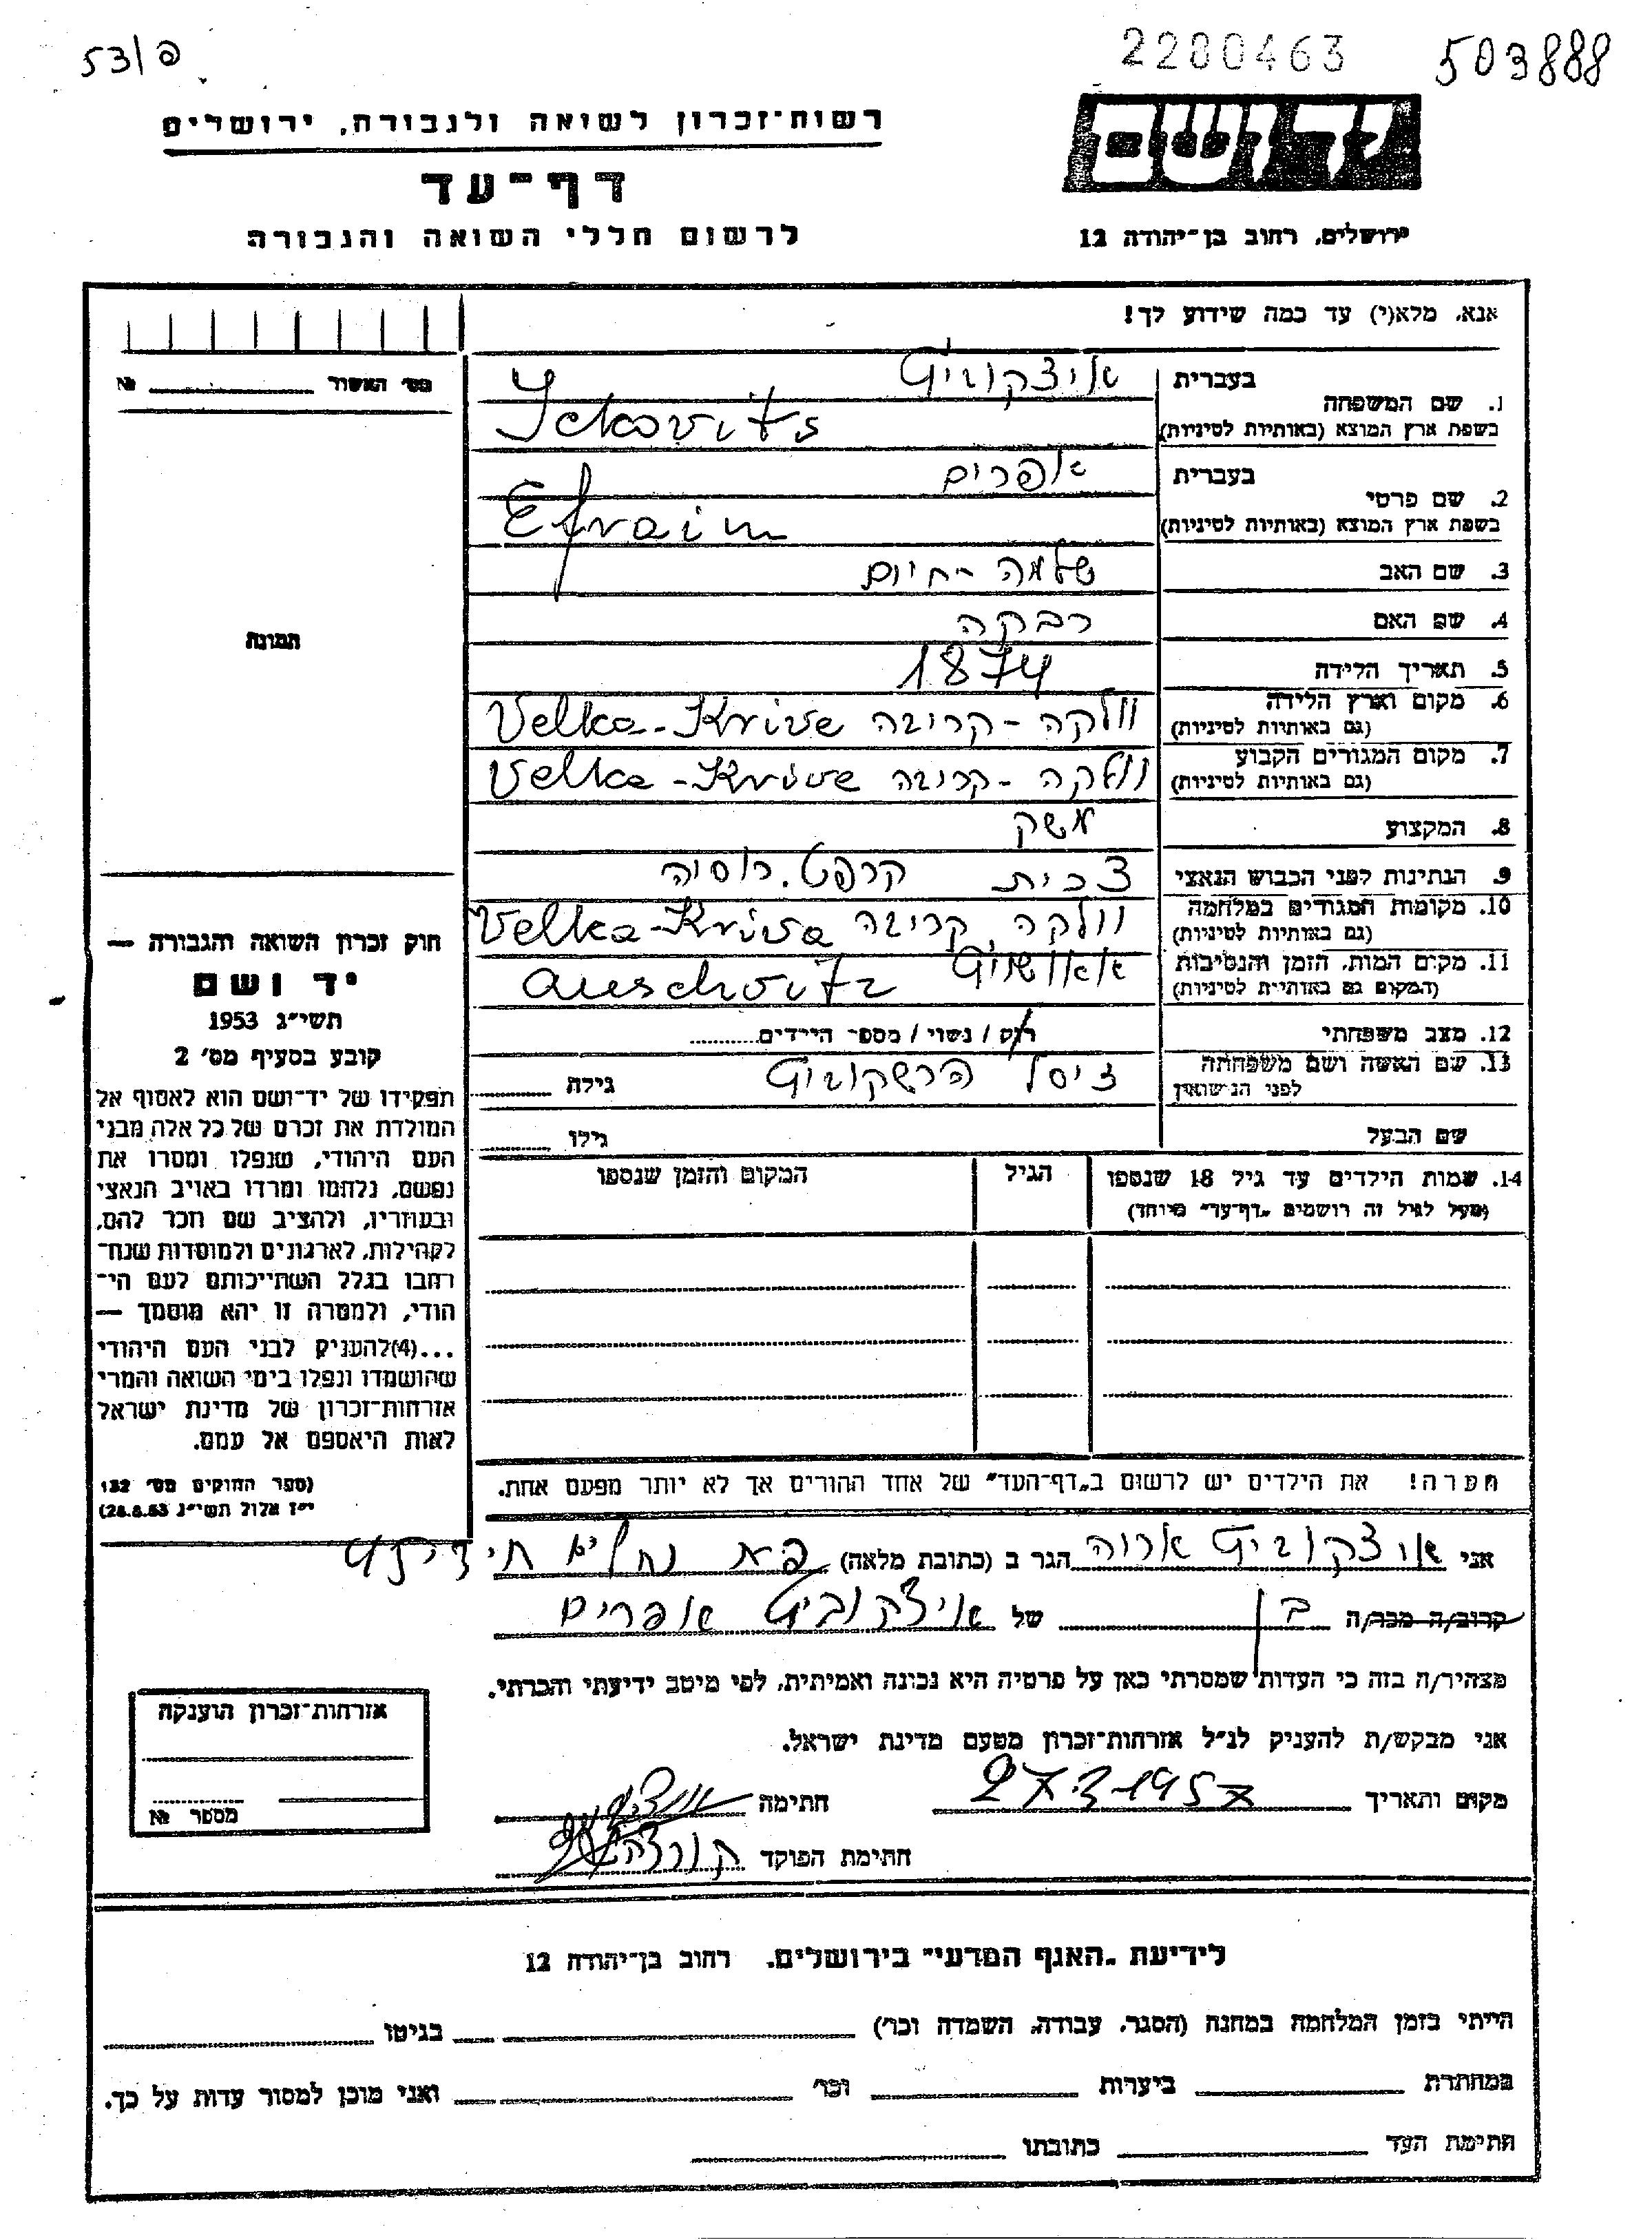 53/פ
2280463
503888
יד ושם
ירושלים, רחוב בן־יהודה 12
רשות־זכרון לשואה ולגבורה, ירושלים
דף־עד
לרשום חללי השואה והגבורה
אנא, מלא(י) עד כמה שידוע לך!
מס׳ האשור № ________
תמונה
חוק זכרון השואה והגבורה —
יד ושם
תשי״ג 1953
קובע בסעיף מס׳ 2
תפקידו של יד־ושם הוא לאסוף אל
המולדת את זכרם של כל אלה מבני
העם היהודי, שנפלו ומסרו את
נפשם, נלחמו ומרדו באויב הנאצי
ובעוזריו, ולהציב שם וזכר להם,
לקהילות, לארגונים ולמוסדות שנח־
רבו בגלל השתייכותם לעם הי־
הודי, ולמטרה זו יהא מוסמך —
...(4)להעניק לבני העם היהודי
שהושמדו ונפלו בימי השואה והמרי
אזרחות־זכרון של מדינת ישראל
לאות היאספם אל עמם.
(ספר החוקים מס׳ 132
י״ז אלול תשי״ג 28.8.53)
1. שם המשפחה בעברית איצקוביט
בשפת ארץ המוצא (באותיות לטיניות) Ickovits
2. שם פרטי בעברית אפרים
בשפת ארץ המוצא (באותיות לטיניות) Efraim
3. שם האב שלמה - חיים
4. שם האם רבקה
5. תאריך הלידה 1874
6. מקום וארץ הלידה (גם באותיות לטיניות) וולקה - קריבה Velka-Krive
7. מקום המגורים הקבוע (גם באותיות לטיניות) וולקה - קריבה Velka-Krive
8. המקצוע משק
9. הנתינות לפני הכבוש הנאצי צכית קרפט. רוסיה
10. מקומות המגורים במלחמה (גם באותיות לטיניות) וולקה קריבה Velka-Kriva
11. מקום המות, הזמן והנסיבות (המקום גם באותיות לטיניות) אאושויט Auschvitz
12. מצב משפחתי רוק / נשוי / מספר הילדים
13. שם האשה ושם משפחתה לפני הנישואין ציסל הרשקוביט גילה
שם הבעל גילו
14. שמות הילדים עד גיל 18 שנספו הגיל המקום והזמן שנספו
(מעל לגיל זה רושמים „דף־עד״ מיוחד)
הערה! את הילדים יש לרשום ב„דף־העד״ של אחד ההורים אך לא יותר מפעם אחת.
אני איצקוביט אריה הגר ב (כתובת מלאה)
קרוב/ה מכר/ה בן של איצקוביט אפרים
מצהיר/ה בזה כי העדות שמסרתי כאן על פרטיה היא נכונה ואמיתית, לפי מיטב ידיעתי והכרתי.
אני מבקש/ת להעניק לנ״ל אזרחות־זכרון מטעם מדינת ישראל.
מקום ותאריך 27.3.1957 חתימה
חתימת הפוקד
אזרחות־זכרון הוענקה
מספר №
לידיעת „האגף המדעי״ בירושלים, רחוב בן־יהודה 12
הייתי בזמן המלחמה במחנה (הסגר, עבודה, השמדה וכו׳) ________ בגיטו ________
במחתרת ________ ביערות ________ וכו׳ ________ ואני מוכן למסור עדות על כך.
חתימת העד ________ כתובתו ________